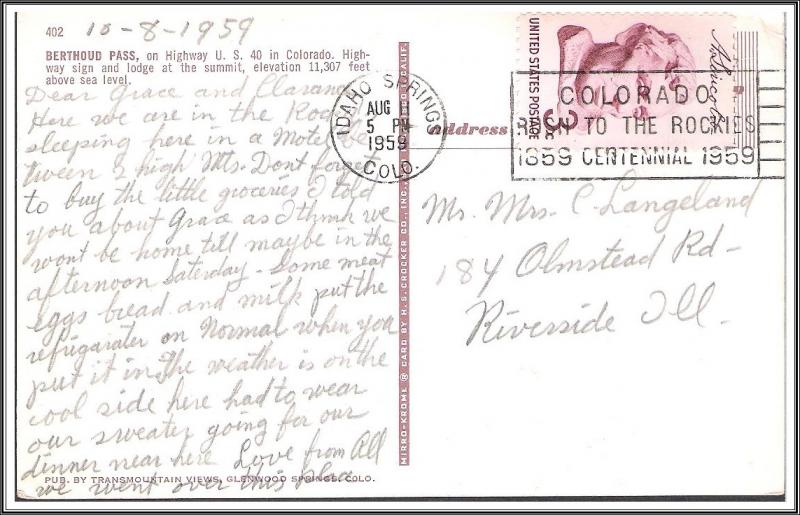 402 10-8-1959
BERTHOUD PASS, on Highway U. S. 40 in Colorado. High-
way sign and lodge at the summit, elevation 11,307 feet
above sea level.
Dear Grace and Clarance
Here we are in the Rockies
sleeping here in a Motel be
tween 2 high Mts. Dont forget
to buy the little groceries I told
you about Grace as I think we
wont be home till maybe in the
afternoon Saterday - Some meat
eggs bread and milk put the
refrigarater on Normal when you
put it in. The weather is on the
cool side here had to wear
our sweater going for our
dinner near here Love from All
we went over this
PUB. BY TRANSMOUNTAIN VIEWS, GLENWOOD SPRINGS, COLO.
MIRRO-KROME ® CARD BY H. S. CROCKER CO., INC., CALIF.
IDAHO SPRINGS
AUG
5 PM
1959
COLO.
Address
UNITED STATES POSTAGE
3¢
COLORADO
RUSH TO THE ROCKIES
1859 CENTENNIAL 1959
Mr. Mrs. C. Langeland
184 Olmstead Rd-
Riverside Ill.